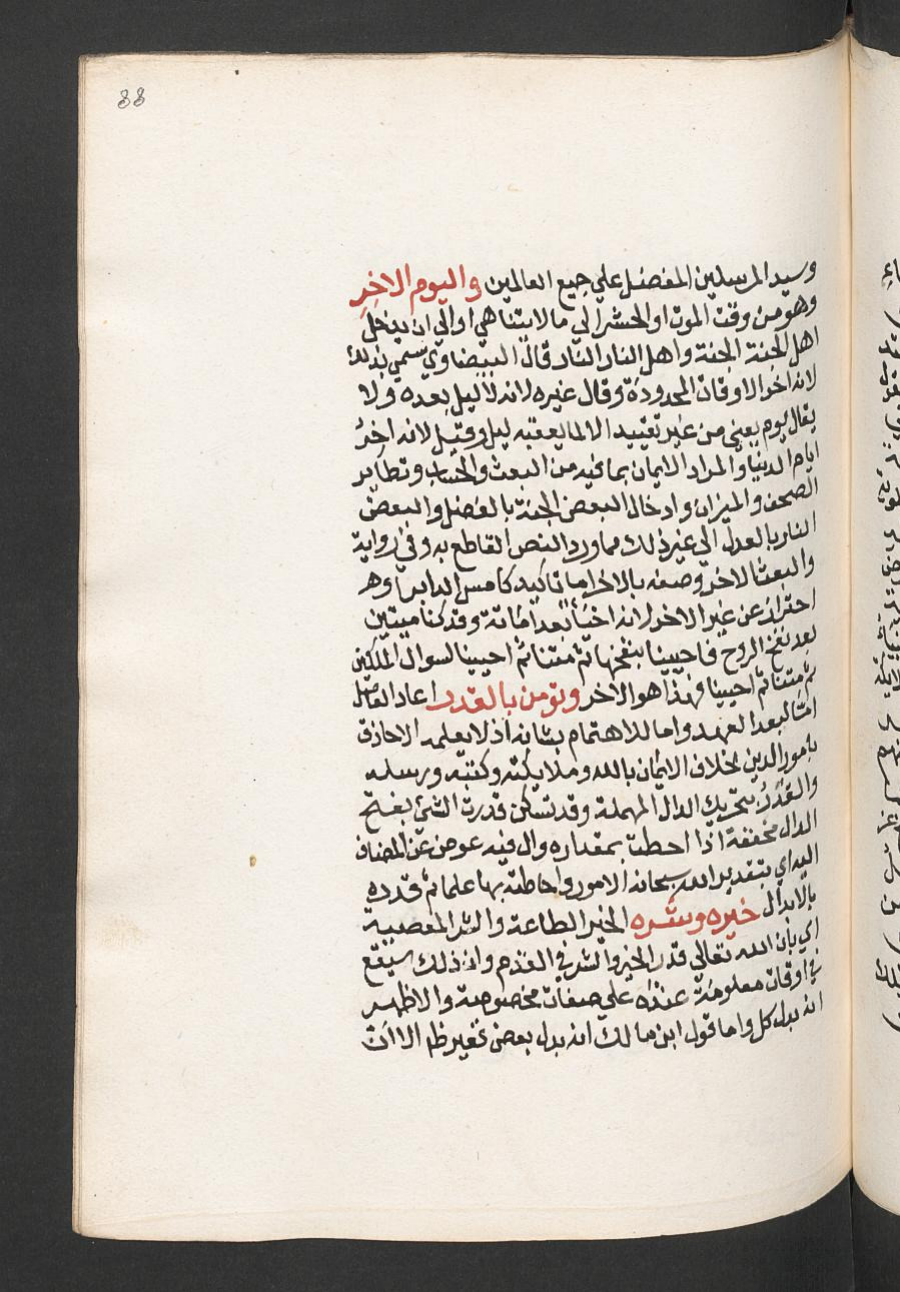 88
وسيد المرسلين المفضل علي جميع العالمين واليوم الاخر
وهو من وقت الموت او الحشر الي ما لا يتناهي او الي ان يدخل
اهل الجنة الجنة واهل النار النار قال البيضاوي سمي بذلك
لانه اخر الاوقات المحدودة وقال غيره لانه لا ليل بعده ولا
يقال يوم يعني من غير تقييد الا لما يعقبه ليل وقيل لانه اخر
ايام الدنيا والمراد الايمان بما فيه من البعث والحساب وتطاير
الصحف والميزان وادخال البعض الجنة بالفضل والبعض
النار بالعدل الي غير ذلك مما ورد النص القاطع به وفي رواية
والبعث الاخر وصفه بالاخر اما تاكيد كامس الدابر او هو
احتراز عن غير الاخر لانه احياء بعد اماتة وقد كنا ميتين
بعد نفخ الروح فاحيينا بنفخها ثم متنا ثم احيينا لسوال الملكين
ثم متنا ثم احيينا فهذا هو الاخر وتومن بالقدر اعاد العامل
اما لبعد العهد واما للاهتمام بشانه اذ لا يعلمه الا حاذق
بامور الدين بخلاف الايمان بالله وملايكته وكتبه ورسله
والقدر بتحريك الدال المهملة وقد تسكن قدرت الشئ بفتح
الدال مخففة اذا احطت بمقداره وال فيه عوض عن المضاف
اليه اي بتقدير الله سبحانه الامور واحاطته بها علما ثم قدره
بالابدال خيره وشره الخير الطاعة والشر المعصية
اي بان الله تعالي قدر الخير والشر في القدم وان ذلك سيقع
في اوقات معلومة عنده علي صفات مخصوصة والاظهر
انه بدل كل واما قول ابن مالك انه بدل بعض فغير ظ الا ان